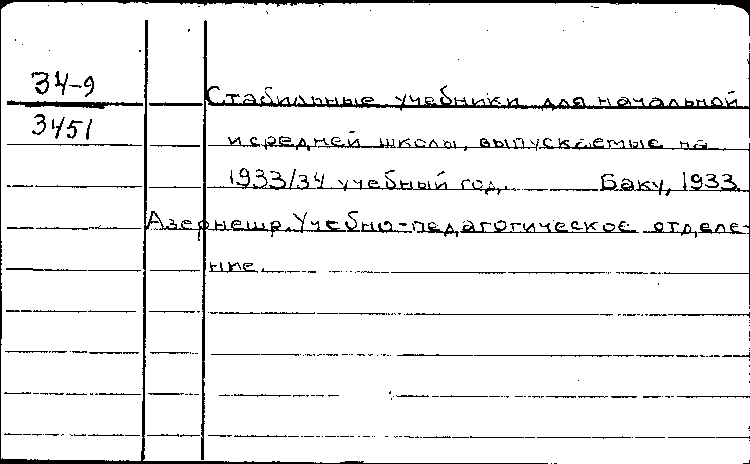 34-9
3451
Стабильные учебники для начальной
и средней школы, выпускаемые на
1933/34 учебный год. Баку, 1933.
Азернешр. Учебно-педагогическое отделе-
ние.